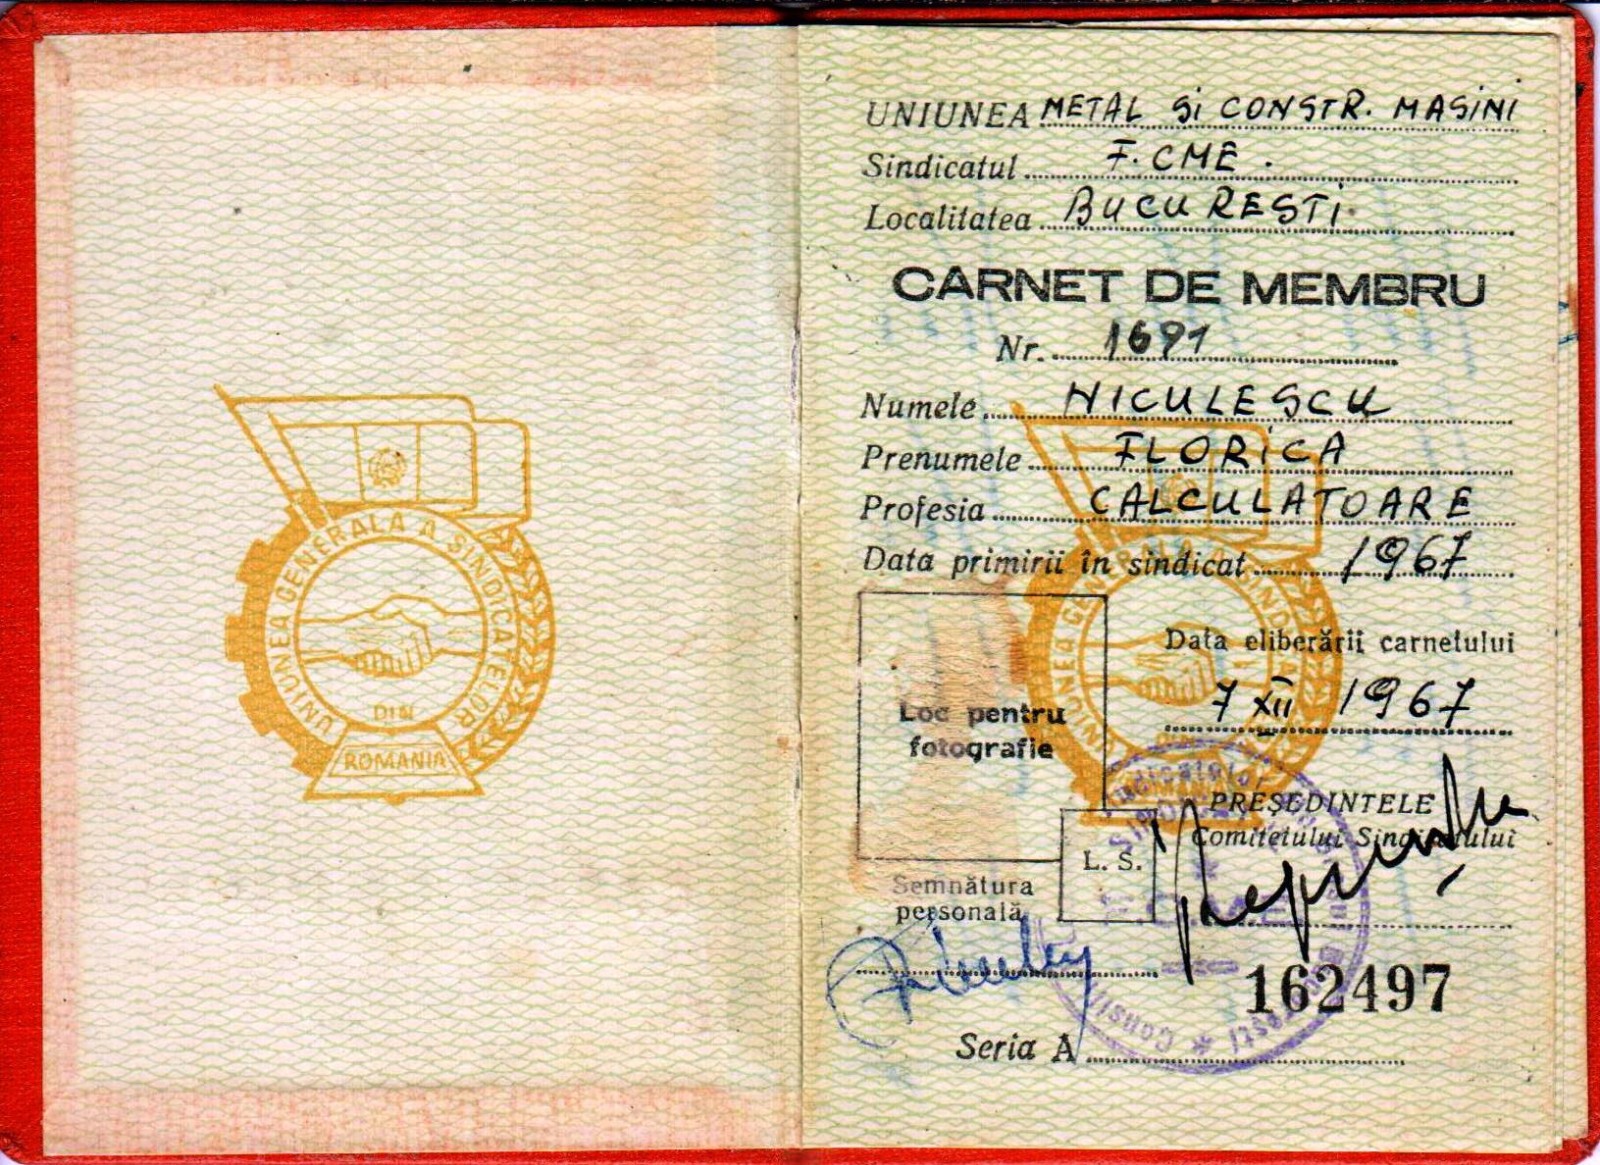 UNIUNEA GENERALA A SINDICATELOR
DIN
ROMANIA
UNIUNEA METAL Și CONSTR. MAȘINI
Sindicatul F. CME.
Localitatea BUCUREȘTI
CARNET DE MEMBRU
Nr. 1691
Numele NICULESCU
Prenumele FLORICA
Profesia CALCULATOARE
Data primirii în sindicat 1967
Data eliberării carnetului
7 XII 1967
Loc pentru
fotografie
PREȘEDINTELE
Comitetului Sindicatului
L. S.
Semnătura
personală
162497
Seria A